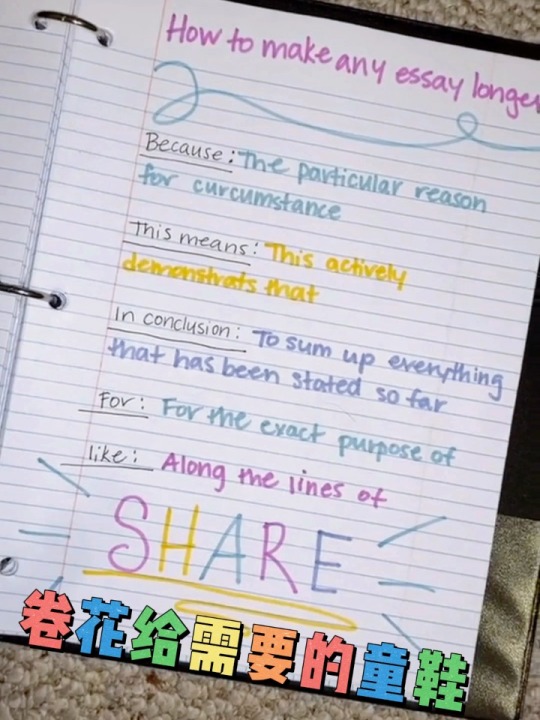 How to make any essay longer
Because: The particular reason
for curcumstance
This means: This actively
demonstrats that
In conclusion: To sum up everything
that has been stated so far
For: For the exact purpose of
like: Along the lines of
SHARE
卷花给需要的童鞋